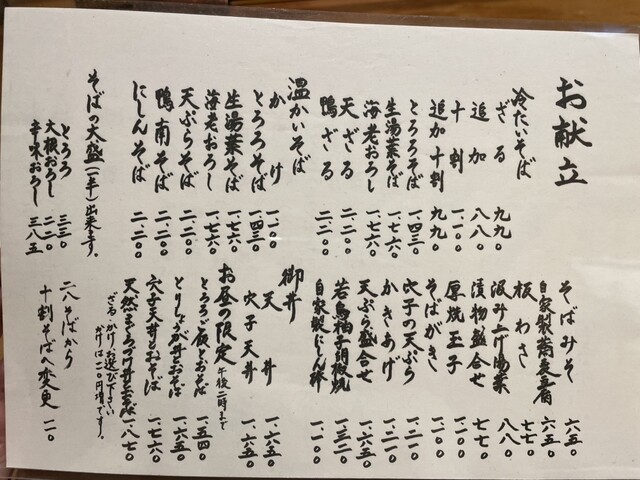 お献立
冷たいそば
ざる 九九〇
追加 八八〇
十割 一、一〇〇
追加十割 九九〇
とろろそば 一、四三〇
生湯葉そば 一、七六〇
海老おろし 一、七六〇
天ざる 二、二〇〇
鴨ざる 二、二〇〇
温かいそば
かけ 一、一〇〇
とろろそば 一、四三〇
生湯葉そば 一、七六〇
海老おろし 一、七六〇
天ぷらそば 二、二〇〇
鴨南そば 二、二〇〇
にしんそば 二、二〇〇
そばの大盛(半)出来ます。
とろろ 三三〇
大根おろし 二二〇
辛味おろし 三八五
そばみそ 六五〇
自家製蕎麦豆腐 六五〇
板わさ 七七〇
汲み上げ湯葉 八八〇
漬物盛合せ 七七〇
厚焼玉子 一、一〇〇
そばがき 一、二一〇
穴子の天ぷら 一、一〇〇
かきあげ 一、二一〇
天ぷら盛合せ 一、六五〇
若鳥柚子胡椒焼 一、三二〇
自家製にしん棒 一、一〇〇
御丼
天丼 一、六五〇
穴子天丼 一、六五〇
お昼の限定 午後二時まで
とろろご飯とおそば 一、五四〇
とりしょうが丼とおそば 一、六五〇
穴子天丼とおそば 一、七六〇
天然まぐろづけ丼とおそば 一、八七〇
ざる・かけお選び下さい
かけは一一〇円増です。
二八そばから
十割そばへ変更 一一〇